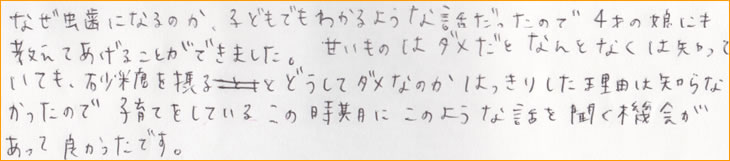 なぜ虫歯になるのか、子どもでもわかるような話だったので 4才の娘にも
教えてあげることができました。 せいものはダメだとなんとなくは知って
いても、砂糖を摂るとどうしてダメなのかはっきりした理由は知らな
かったので 子育てをしているこの時期にこのような話を聞く機会が
あって良かったです。